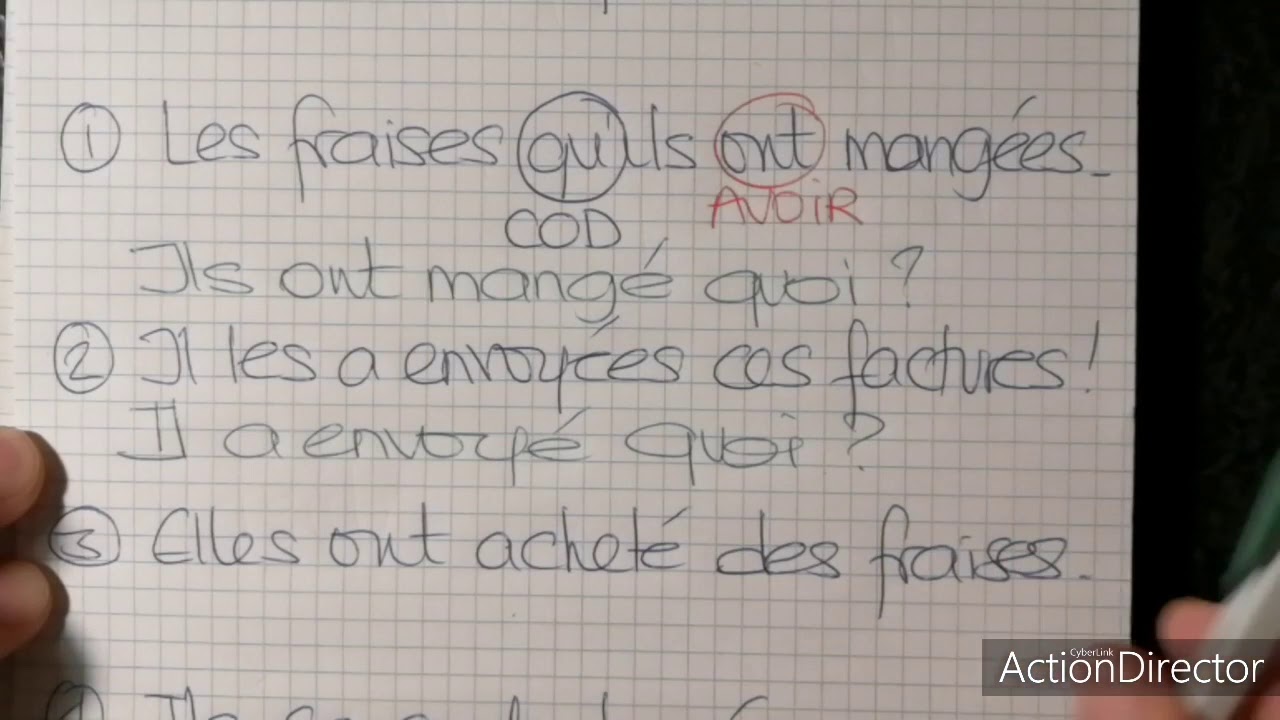 ① Les fraises qu'ils ont mangées.
COD AVOIR
Ils ont mangé quoi ?
② Il les a envoyées ces factures !
Il a envoyé quoi ?
③ Elles ont acheté des fraises.
CyberLink
ActionDirector